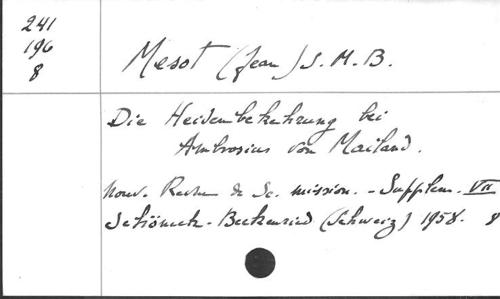 241
196
8
Mesot (Jean) S. M. B.
Die Heidenbekehrung bei
Ambrosius von Mailand.
Nouv. Revue de Sc. mission. - Supplem. VII
Schöneck - Beckenried (Schweiz) 1958. 8